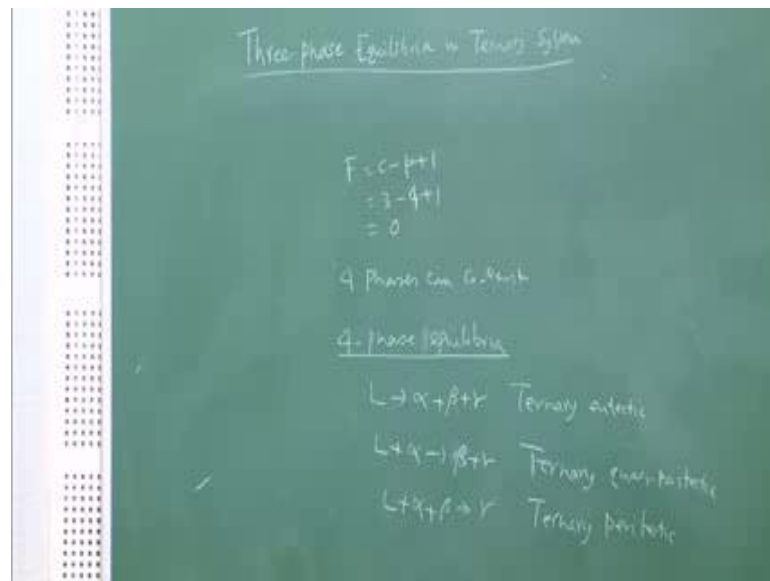 Three-phase Equilibria in Ternary System
F = c-p+1
= 3-4+1
= 0
4 phases can co-exist
4-phase equilibria
L → α+β+γ Ternary eutectic
L+α → β+γ Ternary quasi-peritectic
L+α+β → γ Ternary peritectic